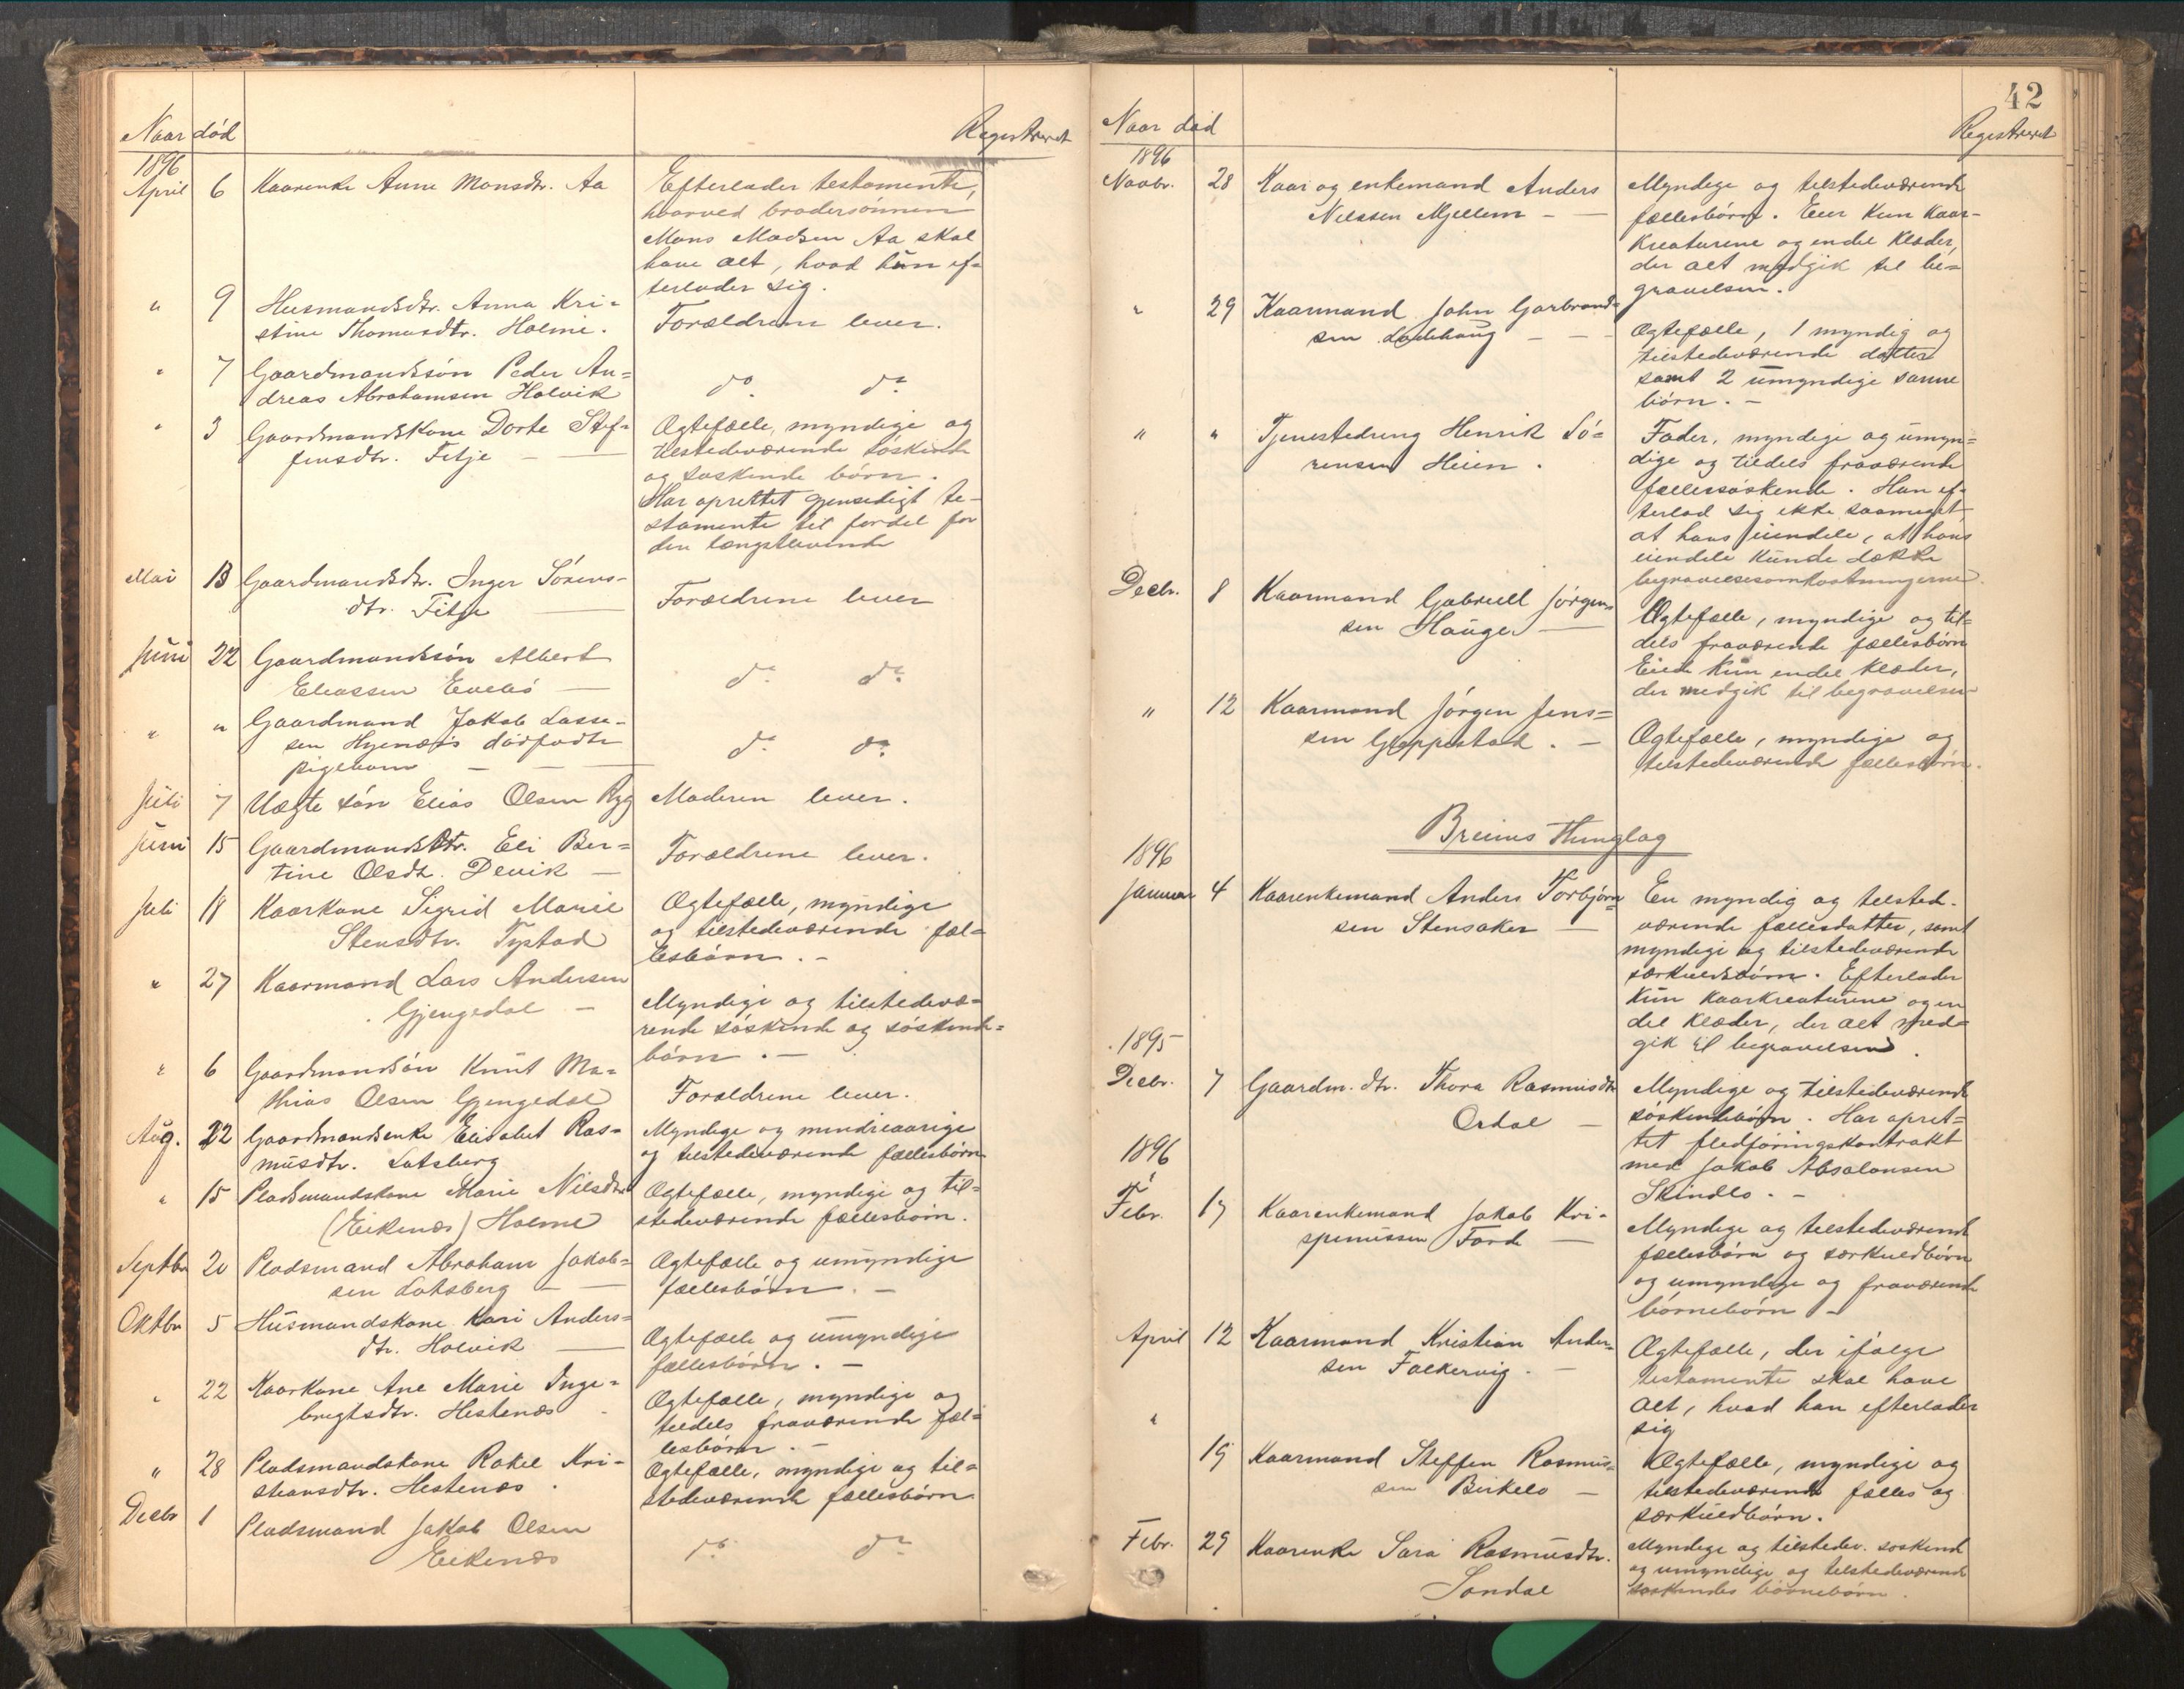 Naar død
Registreret
1896
April 6 Kaarenke Anne Monsdtr. Aa
Efterlader testamente,
hvorved brodersønnen
Mons Madsen Aa skal
have alt, hvad hun ef=
terlader sig.
" 9 Husmandsdtr. Anna Kri=
stine Thomasdtr. Holme.
Forældrene lever.
" 7 Gaardmandssøn Peder An=
dreas Abrahamsen Holvik
do. do.
" 3 Gaardmandskone Dorte Stef=
fensdtr. Fitje —
Ægtefælle, myndige og
tilstedeværende søskende
og søskende børn.
Har oprettet gjensidigt te-
stamente til fordel for
den længstlevende
Mai 13 Gaardmandsdtr. Inger Sørens-
dtr. Fitje —
Forældrene lever
Juni 22 Gaardmandssøn Albert
Eliassen Evebø —
do. do.
" " Gaardmand Jakob Lasse-
sen Hyenæs dødfødte
pigebarn — —
do. do.
Juli 7 Uægte søn Elias Olsen Ryg
Moderen lever.
Juni 15 Gaardmandsdtr. Eli Ber=
tine Olsdtr. Devik —
Forældrene lever.
Juli 18 Kaarkone Sigrid Marie
Stensdtr. Tystad
Ægtefælle, myndige
og tilstedeværende fæl=
lesbørn. -
" 27 Kaarmand Lars Andersen
Gjengedal —
Myndige og tilstedevæ=
rende søskende og søskende=
børn. —
" 6 Gaardmandsøn Knut Ma=
thias Olsen Gjengedal
Forældrene lever.
Aug. 22 Gaardmandsenke Elisabet Ras=
musdtr. Lotsberg
Myndige og mindreaarige
og tilstedeværende fællesbørn
" 15 Pladsmandskone Marie Nilsdtr
(Eikenæs) Holme
Ægtefælle, myndige og til=
stedeværende fællesbørn.
Septbr 20 Pladsmand Abraham Jakob=
sen Lotsberg — —
Ægtefælle og umyndige
fællesbørn. —
Oktbr 5 Husmandskone Kari Anders=
dtr. Holvik —
Ægtefælle og umyndige
fællesbørn. —
" 22 Kaarkone Ane Marie Inge=
brigtsdtr. Hestenæs -
Ægtefælle, myndige og
tildels fraværende fæl=
lesbørn. —
" 28 Pladsmandskone Rakel Kri-
stiansdtr. Hestenæs .
Ægtefælle, myndige og til=
stedeværende fællesbørn
Decbr 1 Pladsmand Jakob Olsen
Eikenæs
do. do.
42
Naar død
Registreret
1896
Novbr. 28 Kaar og enkemand Anders
Nilssen Mjellem — —
Myndige og tilstedeværende
fællesbørn. Eier kun kaar-
kreaturene og endel klæder,
der alt medgik til be=
gravelsen.
" 29 Kaarmand John Garbrands=
sen Lødehaug — —
Ægtefælle, 1 myndig og
tilstedeværende datter
samt 2 umyndige sønne
børn. —
" " Tjenestedreng Henrik Sø=
rensen Heien .
Fader, myndige og umyn=
dige og tildels fraværende
fællessøskende. Han ef-
terlod sig ikke saameget
at hans eiendele, at hans
eiendele kunde dække
begravelsesomkostningerne.
Decbr. 8 Kaarmand Gabriell Jørgens
sen Hauge —
Ægtefælle, myndige og til=
dels fraværende fællesbørn
Eiede kun endel klæder,
der medgik til begravelsen
" 12 Kaarmand Jørgen Jens=
sen Gloppestad. —
Ægtefælle, myndige og
tilstedeværende fællesbørn.
Breims Thinglag
1896
Januar 4 Kaarenkemand Anders Torbjørn=
sen Stensaker —
En myndig og tilsted.
værende fællesdatter, samt
myndige og tilstedeværende
særkuldsbørn. Efterlader
kun kaarkreaturene og en
del klæder, der alt med=
gik til begravelsen.
1895
Decbr. 7 Gaardm. dtr. Thora Rasmusdtr
Ordal —
Myndige og tilstedeværende
søskenbørn. Har opret=
tet fledføringskontrakt
med Jakob Absalonsen
Skindlo. -
1896
Febr. 17 Kaarenkemand Jakob Kri-
spinussen Førde —
Myndige og tilstedeværende
fællesbørn og særkuldbørn
og umyndige og fraværende
børnebørn —
April 12 Kaarmand Kristian Ander-
sen Falkevig. —
Ægtefælle, der ifølge
testamente skal have
alt, hvad han efterlader
sig
" 19 Kaarmand Steffen Rasmus=
sen Birkelo —
Ægtefælle, myndige og
tilstedeværende fælles og
særkuldbørn.
Febr. 29 Kaarenke Sara Rasmusdtr.
Sandal
Myndige og tilstedev. søskend
og umyndige og tilstedeværende
søskendes børnebørn.